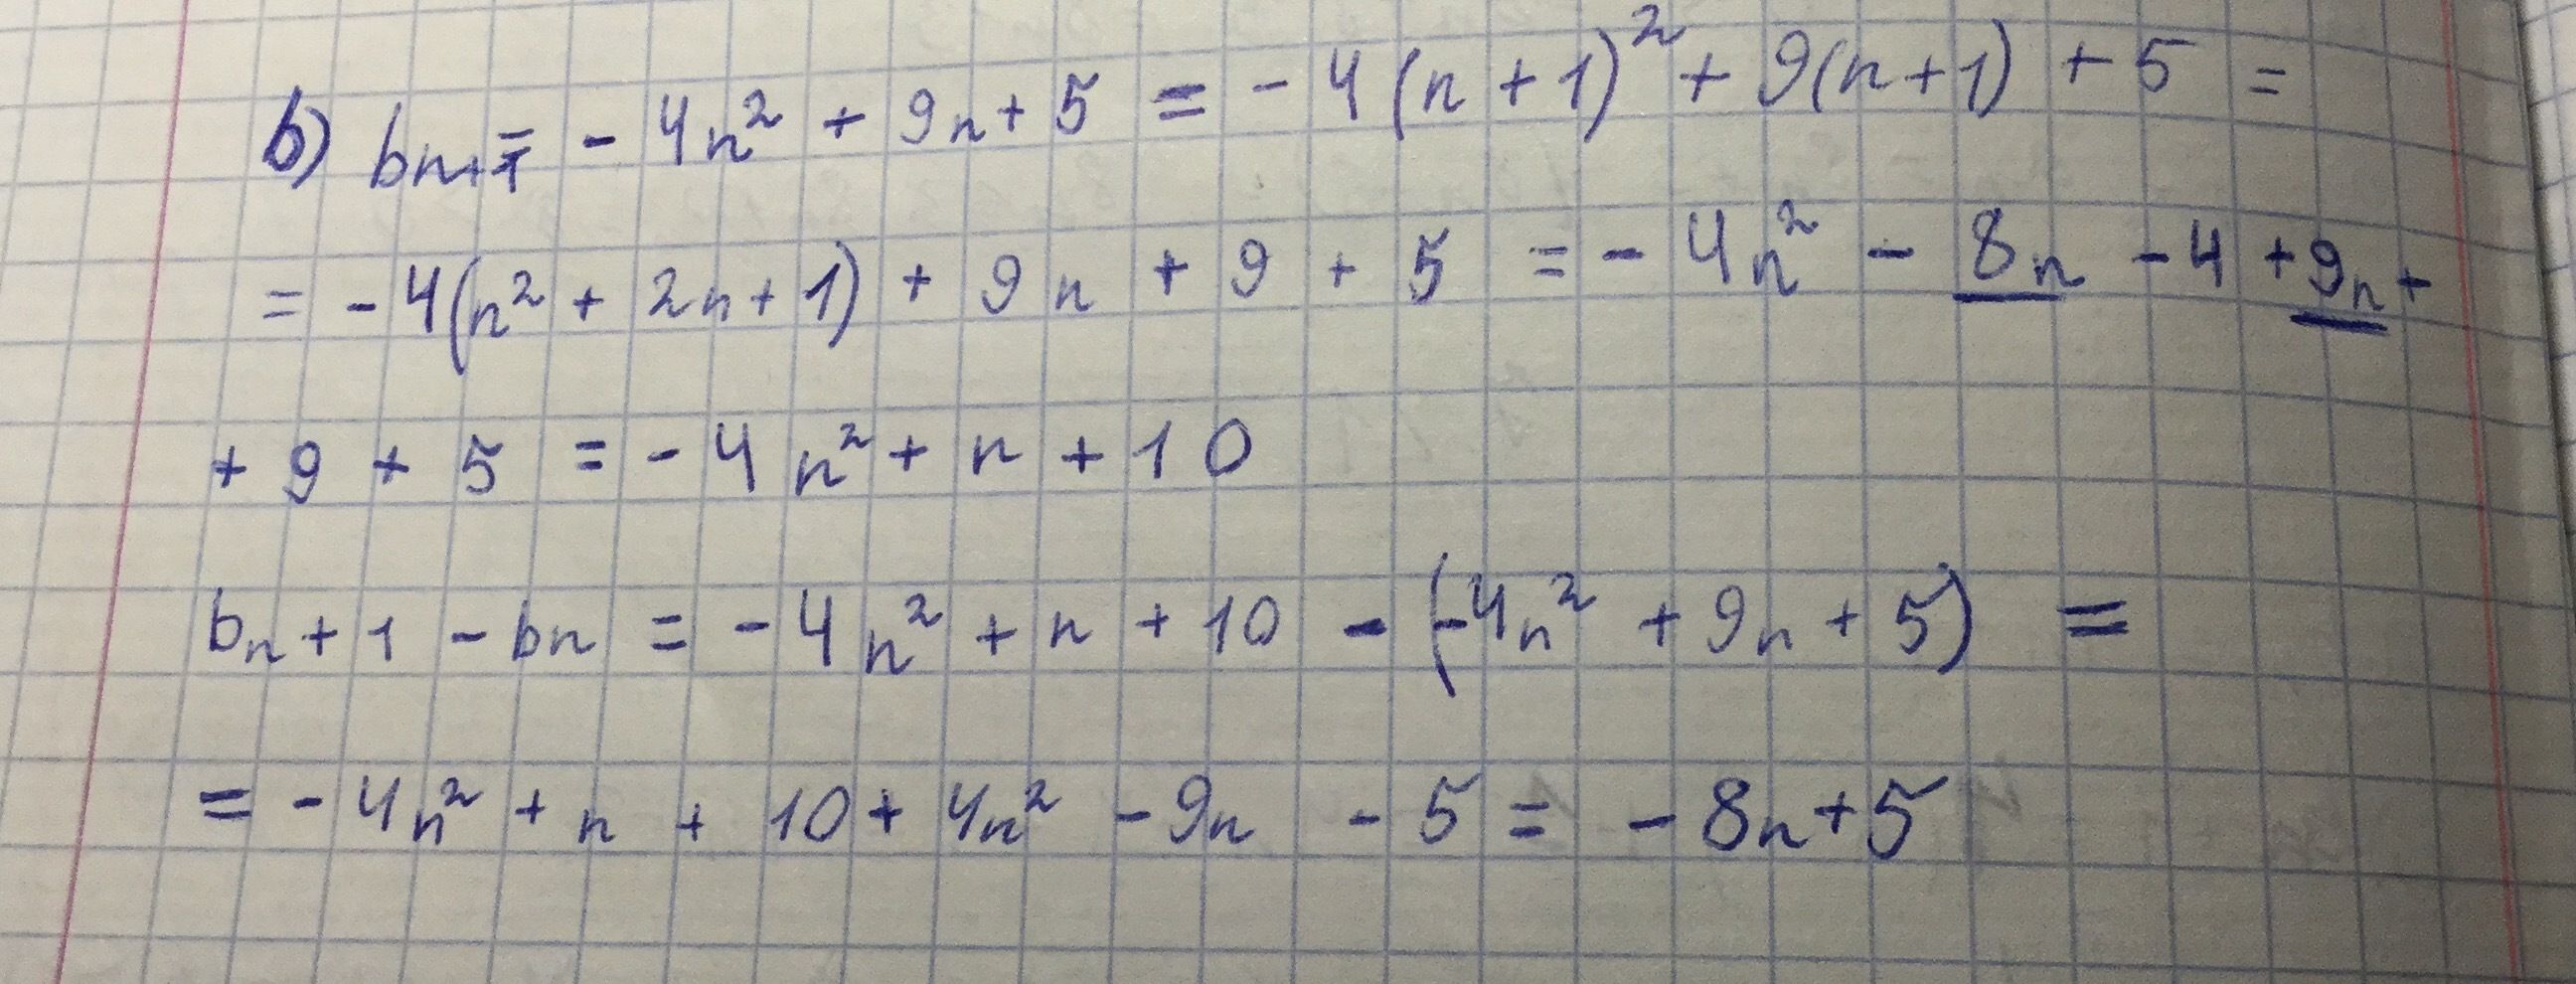 b) bn+1 = - 4n² + 9n + 5 = - 4 (n + 1)² + 9(n+1) + 5 =
= - 4(n² + 2n + 1) + 9n + 9 + 5 = - 4n² - 8n - 4 + 9n +
+ 9 + 5 = - 4n² + n + 10
bn + 1 - bn = - 4n² + n + 10 - (-4n² + 9n + 5) =
= - 4n² + n + 10 + 4n² - 9n - 5 = - 8n + 5